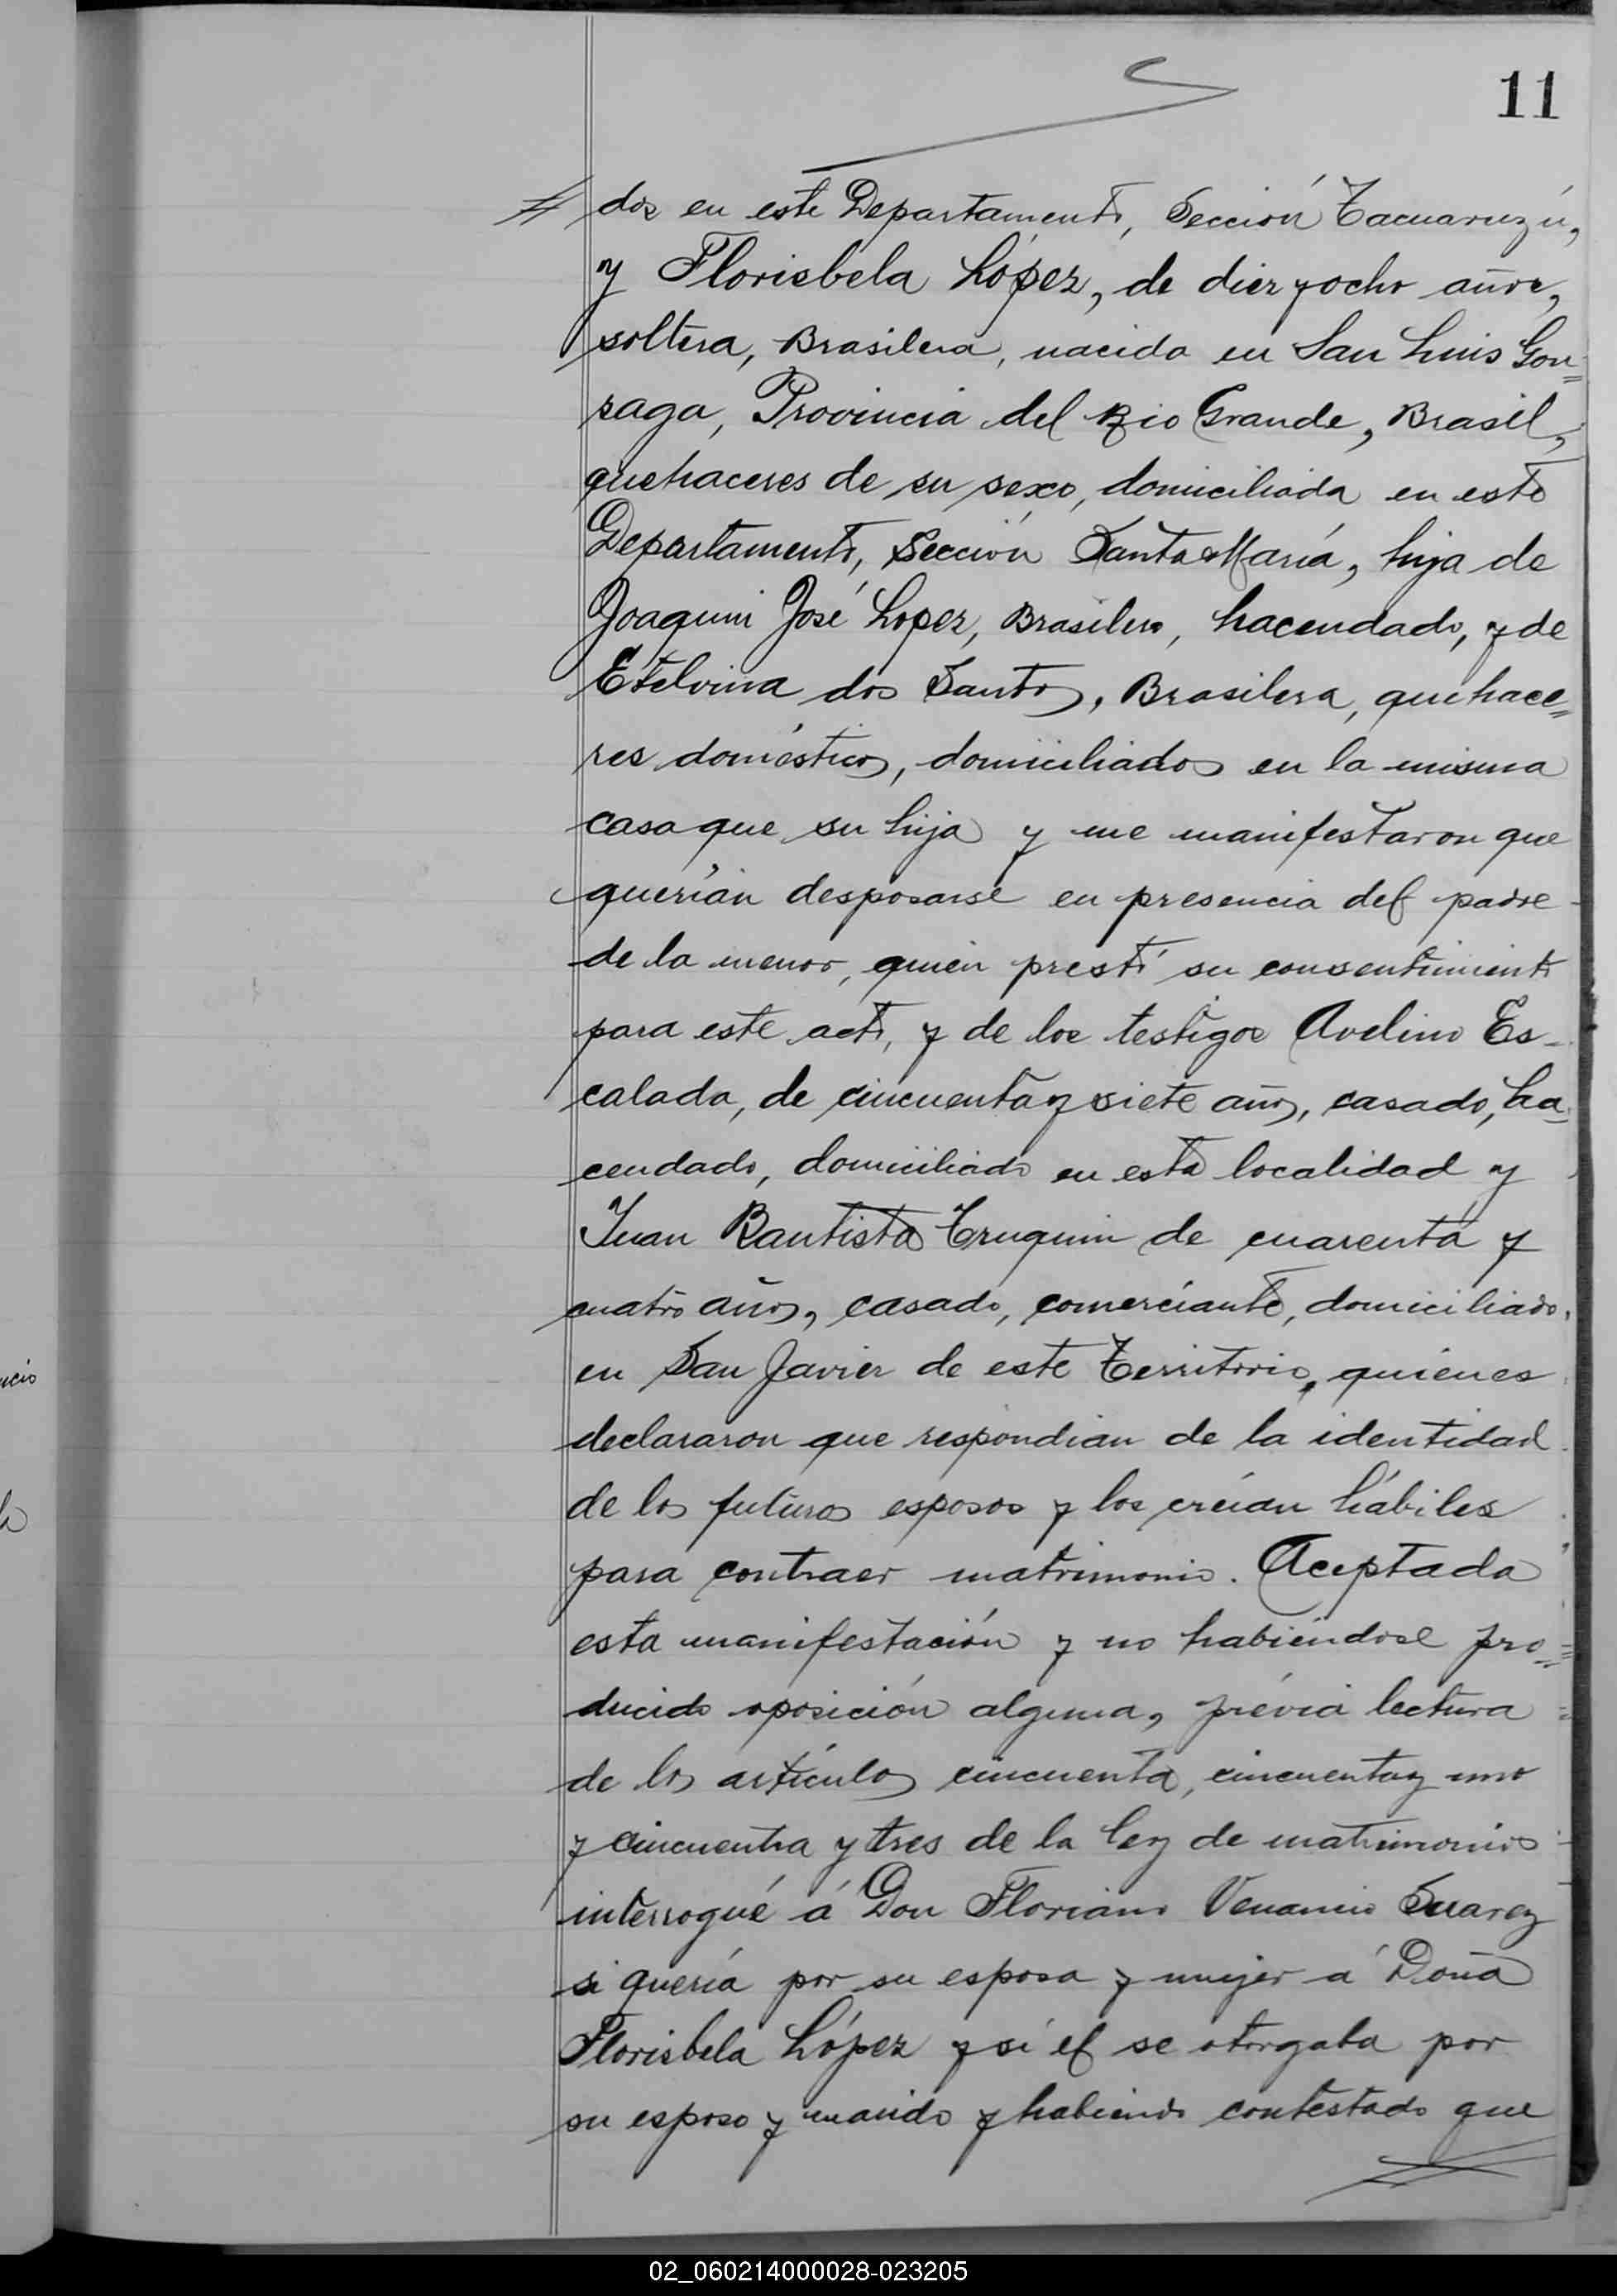 11
dos en este Departamento, Sección Tacuaruzú,
y Florisbela López, de diez y ocho años,
soltera, Brasilera, nacida en San Luis Gon=
zaga, Provincia del Rio Grande, Brasil,
quehaceres de su sexo, domiciliada en este
Departamento, Sección Santa María, hija de
Joaquin José Lopez, Brasilero, hacendado, y de
Etelvina dos Santos, Brasilera, quehace=
res domésticos, domiciliados en la misma
casa que su hija y me manifestaron que
querían desposarse en presencia del padre
de la menor, quien prestó su consentimiento
para este acto, y de los testigos Avelino Es-
calada, de cincuenta y siete años, casado, ha=
cendado, domiciliado en esta localidad y
Juan Bautista Truquin de cuarenta y
cuatro años, casado, comerciante, domiciliado
en San Javier de este Territorio, quienes
declararon que respondian de la identidad
de los futuros esposos y los creían hábiles
para contraer matrimonio. Aceptada
esta manifestación y no habiéndose pro=
ducido oposición alguna, prévia lectura
de los artículos cincuenta, cincuenta y uno
y cincuenta y tres de la ley de matrimonio
interrogué á Don Floriano Venancio Suarez
si quería por su esposa y mujer á Doña
Florisbela López y si él se otorgaba por
su esposo y marido y habiendo contestado que
02_060214000028-023205